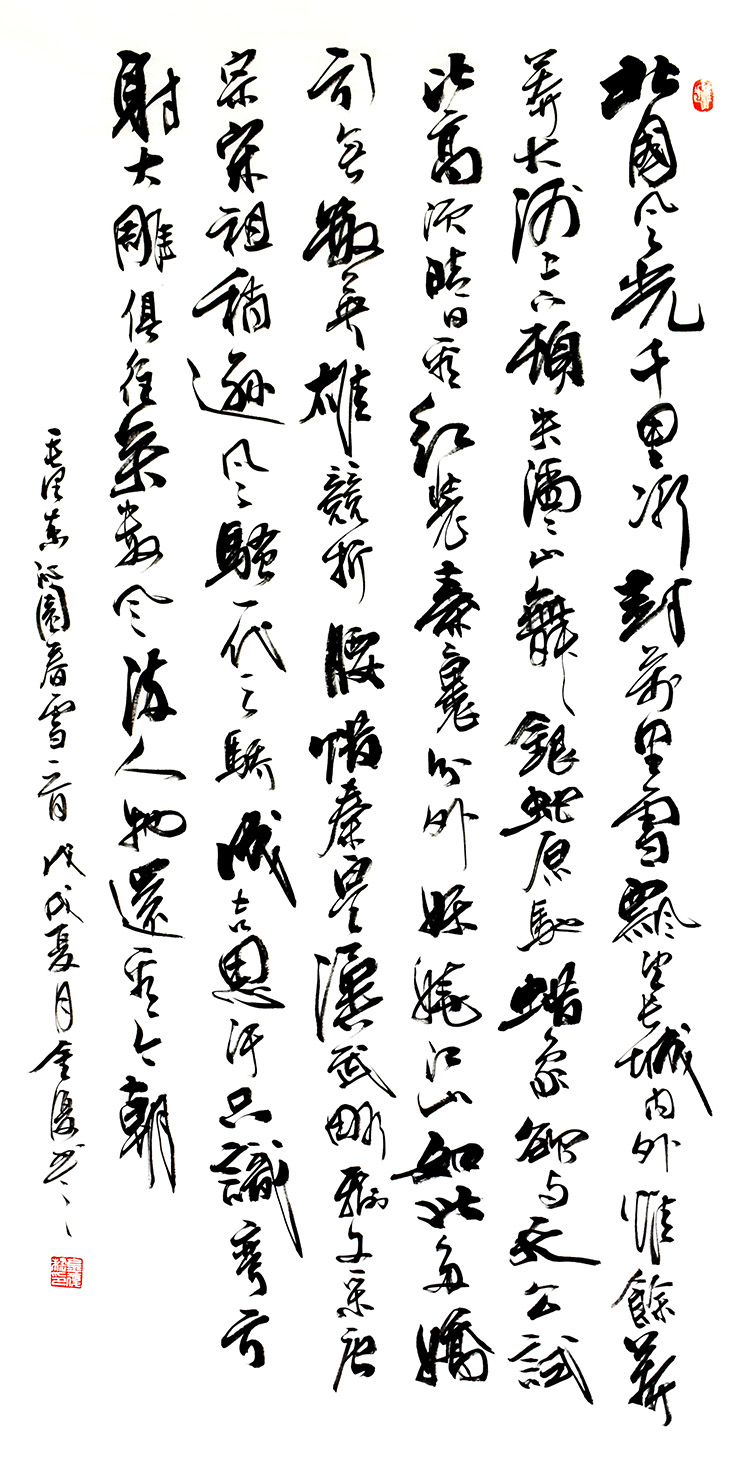 北國風光千里冰封萬里雪飄望長城内外惟餘莽
莽大河上下頓失滔滔山舞銀蛇原馳蠟象欲与天公試
比高須晴日看紅裝素裹分外妖嬈江山如此多嬌
引無數英雄競折腰惜秦皇漢武略輸文采唐
宗宋祖稍遜風騷一代天驕成吉思汗只識彎弓
射大雕俱往矣數風流人物還看今朝
毛澤東沁園春雪一首戊戌夏月